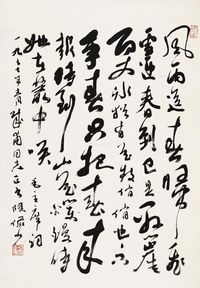 風雨送春歸飛
雪迎春到已是懸崖
百丈冰猶有花枝俏俏也不
爭春只把春來
報待到山花爛漫時
她在叢中笑 毛主席詞
一九七七年五月 同志正